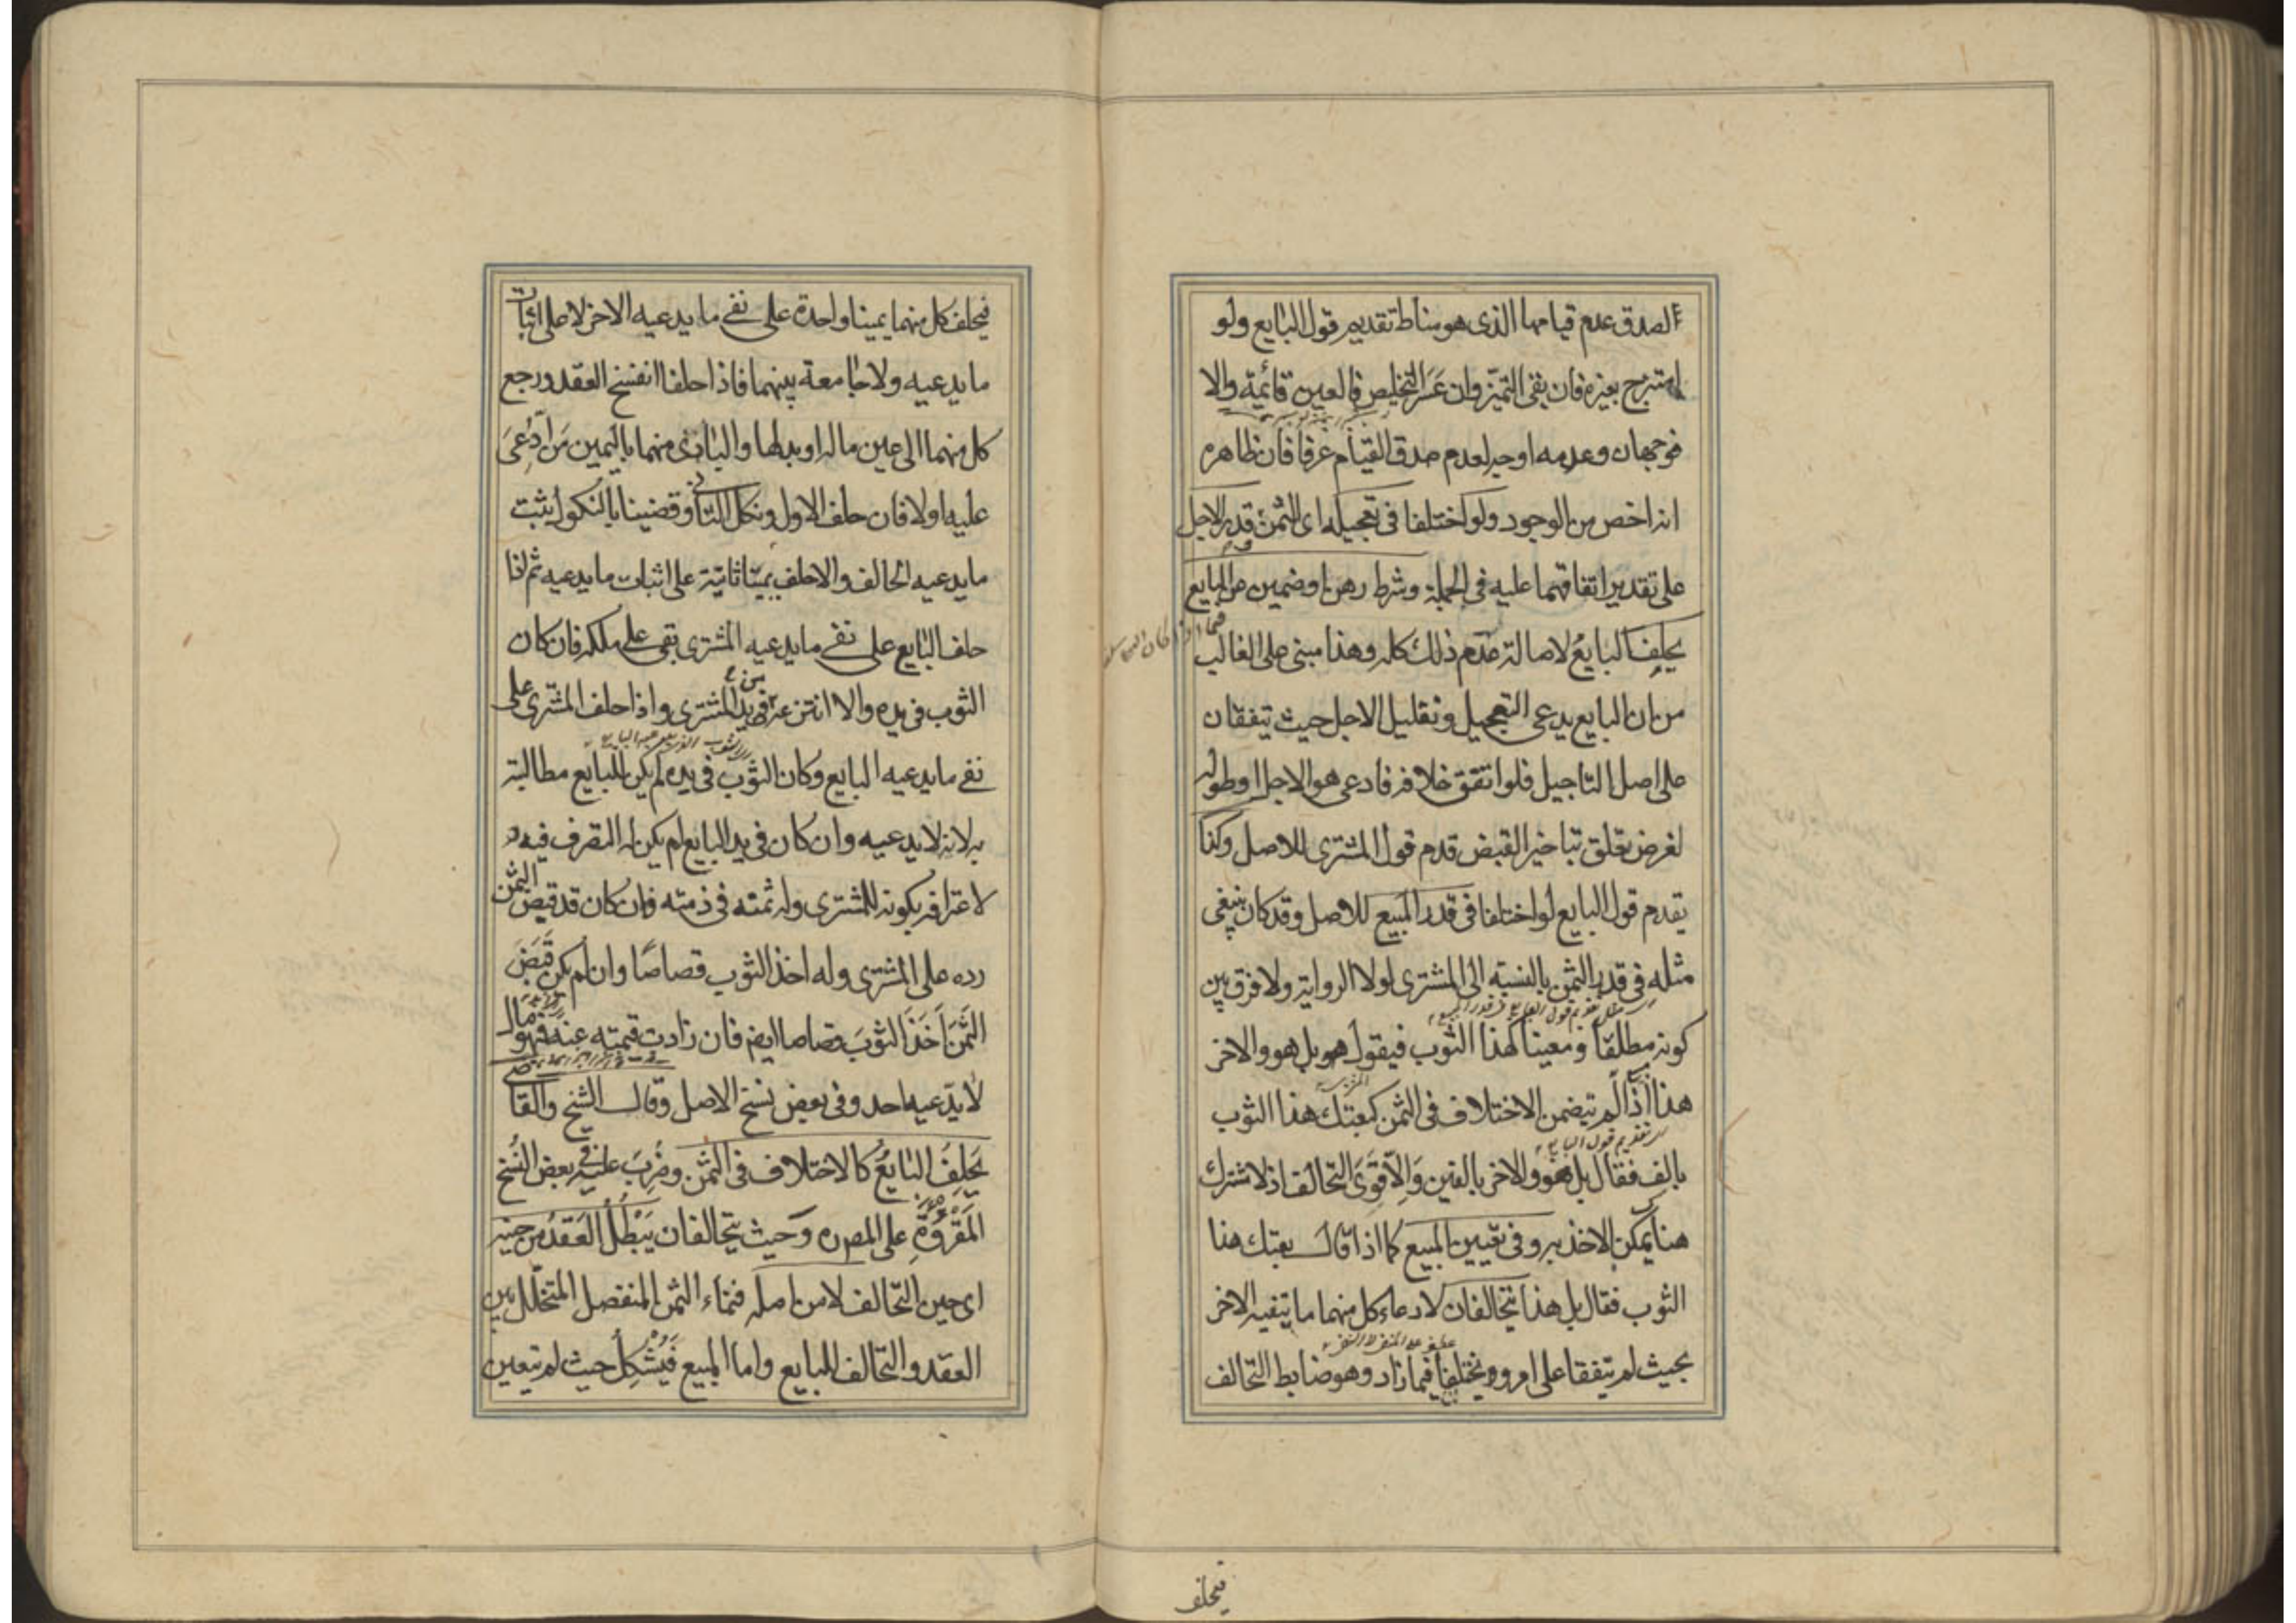 الصدق عدم قيامها الذى هو مناط تقديم قول البايع ولو
امتزج بغيره فان بقى التميّز وان عَسَر التخليص فالعين قائمة والا
فوجهان وعدمه اوجه لعدم صدق القيام عرفا فان ظاهره
انه اخص من الوجود ولو اختلفا فى تعجيله اى الثمن وقدر الاجل
على تقدير اتفاقهما عليه فى الجملة وشرط رهن او ضمين عن البايع
يحلف البايعُ لاصالة عدم ذلك كله وهذا مبنى على الغالب
من ان البايع يدعى التعجيل وتقليل الاجل حيث يتفقان
على اصل التاجيل فلو اتفق خلافه فادعى هو الاجل او طوله
لغرض يتعلق بتاخير القبض قدم قول المشترى للاصل وكذا
يقدم قول البايع لو اختلفا فى قدر المبيع للاصل وقد كان ينبغى
مثله فى قدر الثمن بالنسبة الى المشترى لولا الرواية ولا فرق بين
كونه مطلقا ومعينا كهذا الثوب فيقول هو بل هو والاخر
هذا اذا لم يتضمن الاختلاف فى الثمن كبعتك هذا الثوب
بالف فقال بل هو والاخر بالفين وَالّا قوى التحالف اذ لا مشترك
هنا يمكن الاخذ به وفى تعيين المبيع كما اذا قال بعتك هذا
الثوب فقال بل هذا يتحالفان لادعاء كل منهما ما ينفيه الاخر
بحيث لم يتفقا على امر ويختلفا فيما زاد وهو ضابط التحالف
فيحلف
فيحلف كل منهما يمينا واحدة على نفى ما يدعيه الاخر لا على اثبات
ما يدعيه ولا جامعة بينهما فاذا حلفا انفسخ العقد ورجع
كل منهما الى عين ماله او بدلها والبادى منهما باليمين مَن ادُّعِىَ
عليه اولا فان حلف الاول ونكل الثانى وقضينا بالنكول يثبت
ما يدعيه الحالف والا حلف يمينا ثانية على اثبات ما يدعيه ثم اذا
حلف البايع على نفى ما يدعيه المشترى بقى على ملكه فان كان
الثوب فى يده والا انتزعه من يد المشترى واذا حلف المشترى على
نفى ما يدعيه البايع وكان الثوب فى يده لم يكن للبايع مطالبته
به لانه لا يدعيه وان كان فى يد البايع لم يكن له التصرف فيه
لاعترافه بكونه للمشترى وله ثمنه فى ذمته فان كان قد قبض الثمن
رده على المشترى وله اخذ الثوب قصاصًا وان لم يكن قَبَضَ
الثَمَنَ اَخَذَ الثوبَ قصاصا ايضا فان زادت قيمته عنه فهو مال
لا يدّعيه احد وفى بعض نسخ الاصل وقال الشيخ والقاضى
يَحلِفُ البايعُ كالاختلاف فى الثمن وضُرِبَ عليه فى بعض النُسَخ
المَقرُوَّةِ على المصره وَحيث يتحالفان يَبْطُلُ العَقدُ من حينه
اى حين التحالف لا من اصله فنماء الثمن المنفصل المتخلّل بين
العقد والتحالف للبايع واما المبيع فَيُشْكِلُ حيث لم يتعين